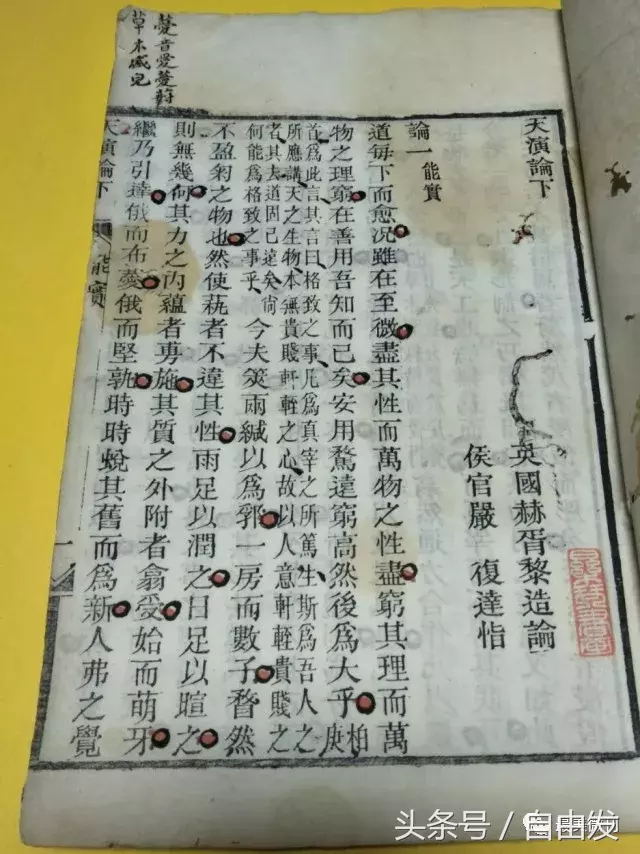 天演論下
英國赫胥黎造論
侯官嚴 復達恉
論一 能實
道每下而愈況雖在至微盡其性而萬物之性盡窮其理而萬
物之理窮在善用吾知而已矣安用騖遠窮高然後為大乎柏庚
首為此言其言曰格致之事凡為真宰之所篤生斯為吾人之
所應講天之生物本無貴賤軒輊之心故以人意軒輊貴賤之
者其去道固已遠矣尚
何能為格致之事乎今夫筴兩緘以為郛一房而數子瞀然
不盈匊之物也然使蓺者不違其性雨足以潤之日足以暄之
則無幾何其力之內蘊者旉施其質之外附者翕受始而萌牙
繼乃引達俄而布薆俄而堅孰時時蛻其舊而為新人弗之覺
天演論下 能實 一
薆音愛薆蔚
草木盛皃
头条号 / 自由发